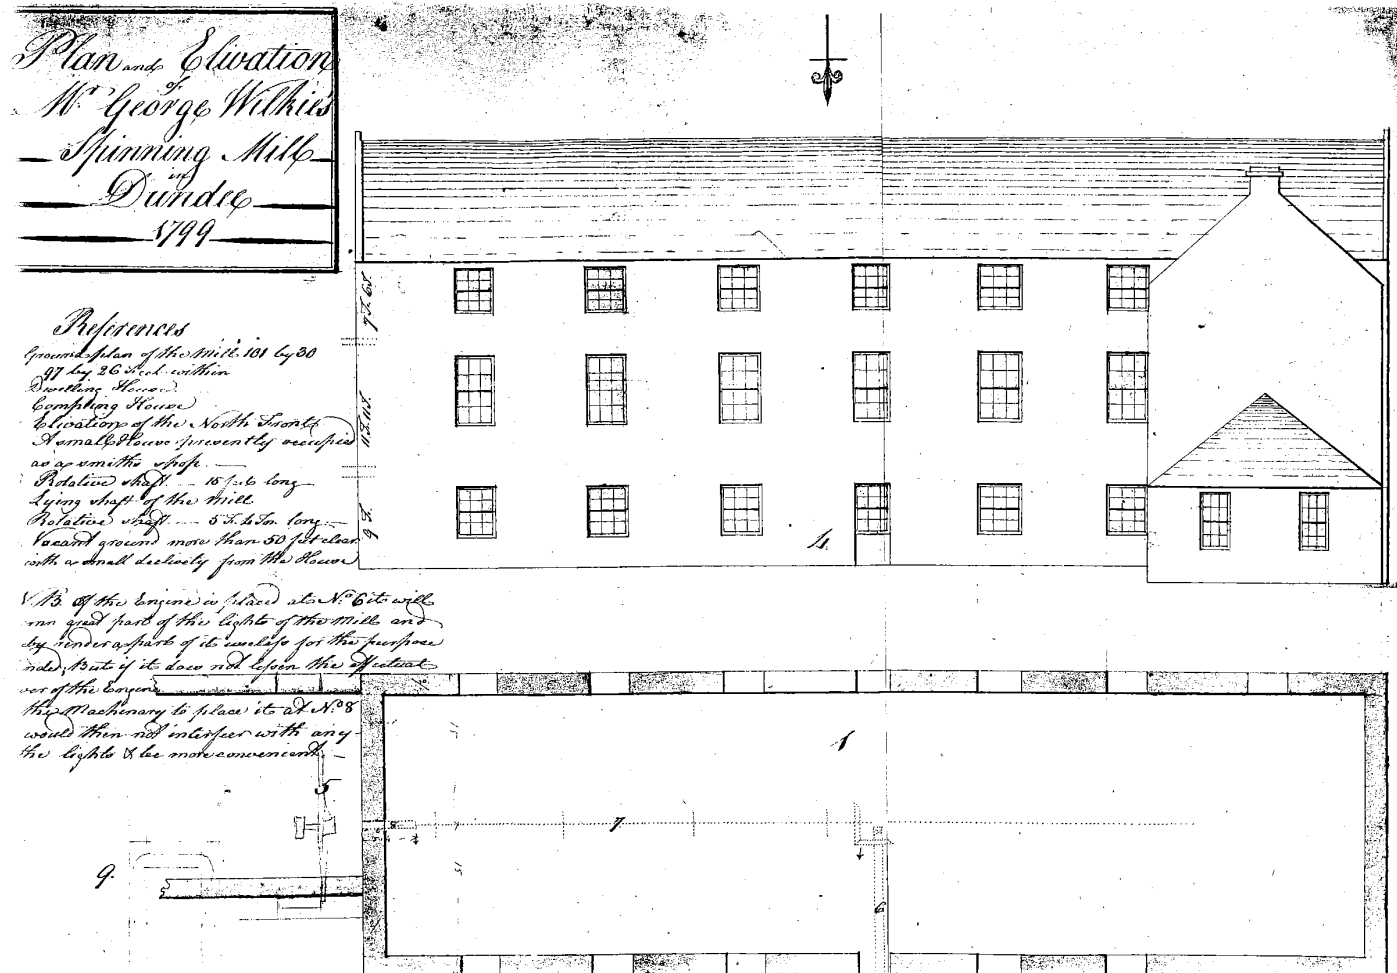 Plan and Elivation
of
Mr George Wilkie's
Spinning Mill
in
Dundee
1799
References
Ground plan of the Mill 101 by 30
97 by 26 Feet within
Dwelling House
Compting House
Elivation of the North Front
A small House presently occupied
as a smiths shop
Rotative shaft 15 f. 6 long
Lying shaft of the Mill
Rotative shaft 5 F. 4 In long
Vacant ground more than 50 feet clear
with a small declivity from the House
N.B. If the Engine is placed at No 6 it will
great part of the lights of the Mill and
by render a part of it useless for the purpose
But if it does not lessen the effectual
of the Engine
the Machinary to place it at No 8
would then not interfeer with any
the lights & be more convenient
7 F. 6 I.
11 F. 11 I.
9 F.
4
1
5
7
8
9.
6
15
15